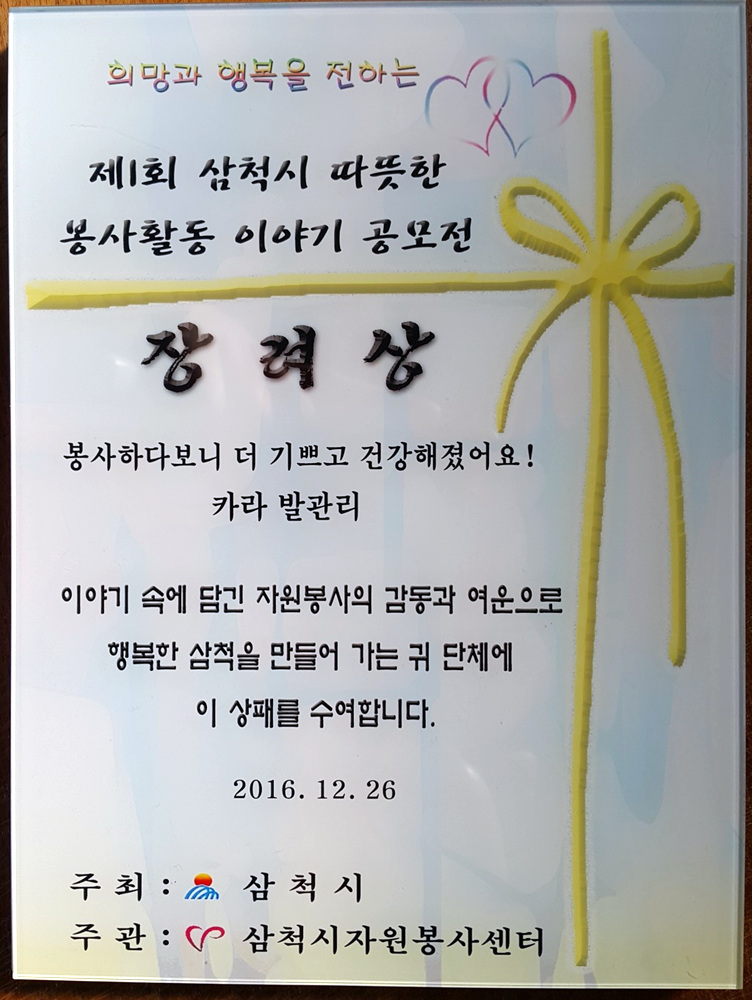 희망과 행복을 전하는
제1회 삼척시 따뜻한
봉사활동 이야기 공모전
장려상
봉사하다보니 더 기쁘고 건강해졌어요!
카라 발관리
이야기 속에 담긴 자원봉사의 감동과 여운으로
행복한 삼척을 만들어 가는 귀 단체에
이 상패를 수여합니다.
2016. 12. 26
주최 : 삼척시
주관 : 삼척시자원봉사센터